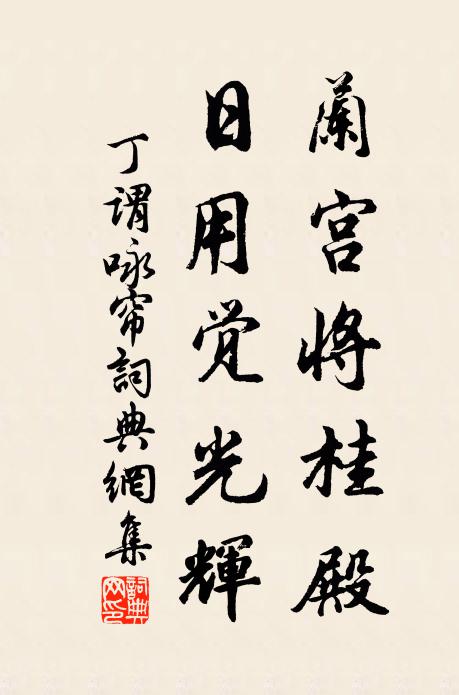 蘭宮將桂殿
日用覺光輝
丁謂咏帘詞典網集
詞典網印